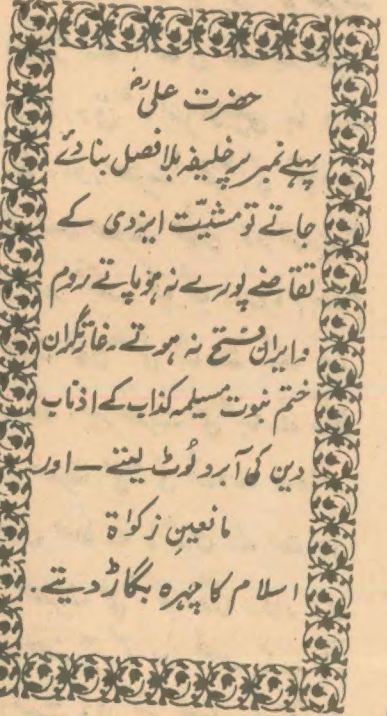 حضرت علیؓ
پہلے نمبر پر خلیفہ بلا فصل بنا دئے
جاتے تو مشیّت ایزدی کے
تقاضے پورے نہ ہو پاتے روم
و ایران فتح نہ ہوتے ۔ غارتگران
ختم نبوت مسیلمہ کذاب کے اذناب
دین کی آبرو لُوٹ لیتے — اور
مانعینِ زکواۃ
اسلام کا چہرہ بگاڑ دیتے۔